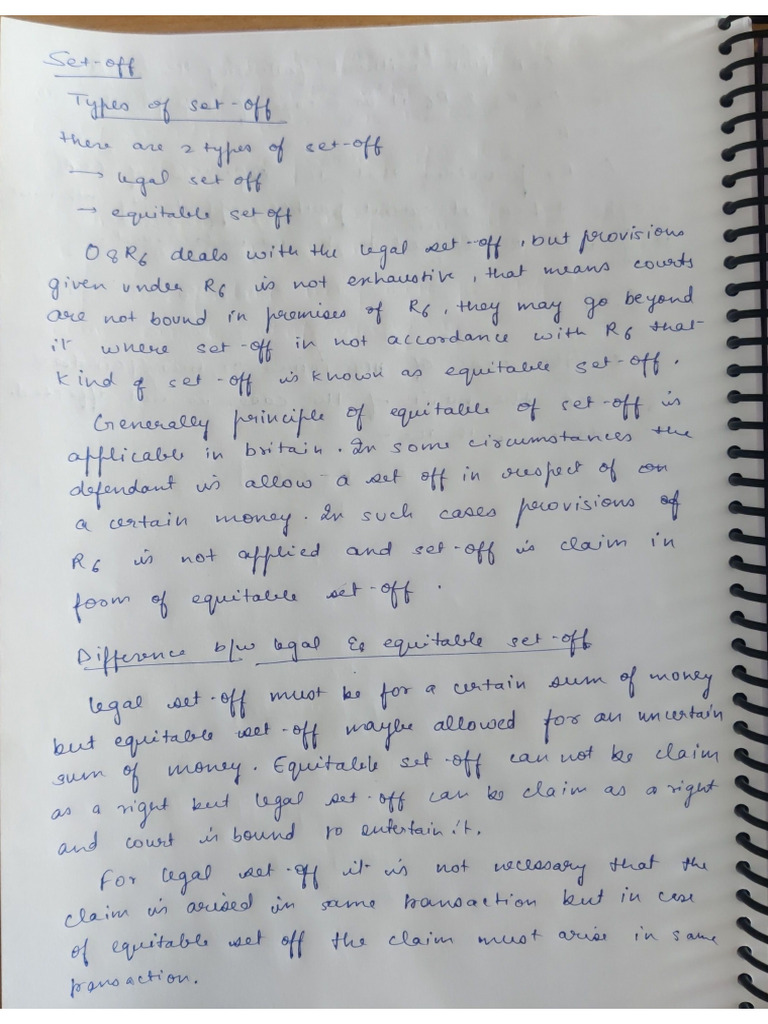 Set-off
Types of set-off
there are 2 types of set-off
→ legal set off
→ equitable set off
O8R6 deals with the legal set-off, but provisions
given under R6 is not exhaustive, that means courts
are not bound in premises of R6, they may go beyond
it where set-off in not accordance with R6 that
kind of set-off is known as equitable set-off.
Generally principle of equitable of set-off is
applicable in britain. In some circumstances the
defendant is allow a set off in respect of on
a certain money. In such cases provisions of
R6 is not applied and set-off is claim in
form of equitable set-off.
Difference b/w legal & equitable set-off
legal set-off must be for a certain sum of money
but equitable set-off maybe allowed for an uncertain
sum of money. Equitable set-off can not be claim
as a right but legal set-off can be claim as a right
and court is bound to entertain it.
For legal set-off it is not necessary that the
claim is arised in same transaction but in case
of equitable set off the claim must arise in same
transaction.